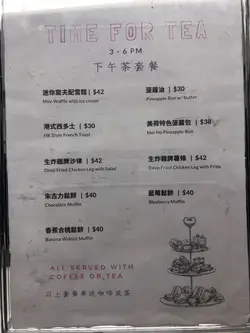 TIME FOR TEA
3 - 6 PM
下午茶套餐
迷你窩夫配雪糕 | $42
Mini Waffle with ice cream
菠蘿油 | $30
Pineapple Bun w/ butter
港式西多士 | $30
HK Style French Toast
美荷特色菠蘿包 | $38
Mei Ho Pineapple Bun
生炸雞髀沙律 | $42
Deep Fried Chicken Leg with Salad
生炸雞髀薯條 | $42
Deep Fried Chicken Leg with Fries
朱古力鬆餅 | $40
Chocolate Muffin
藍莓鬆餅 | $40
Blueberry Muffin
香蕉合桃鬆餅 | $40
Banana Walnut Muffin
ALL SERVED WITH
COFFEE OR TEA
以上套餐奉送咖啡或茶